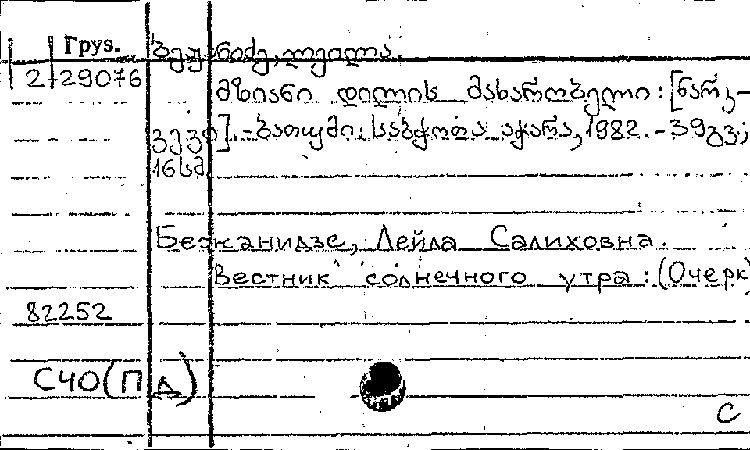 Груз.
2-29076
მზიანი დილის მახარობელი: [ნარკ-
ვევი]. -ბათუმი: საბჭოთა აჭარა, 1982. -39გვ;
16სმ
Бежанидзе, Лейла Салиховна.
Вестник солнечного утра: (Очерк)
82252
С40(ПА)
С